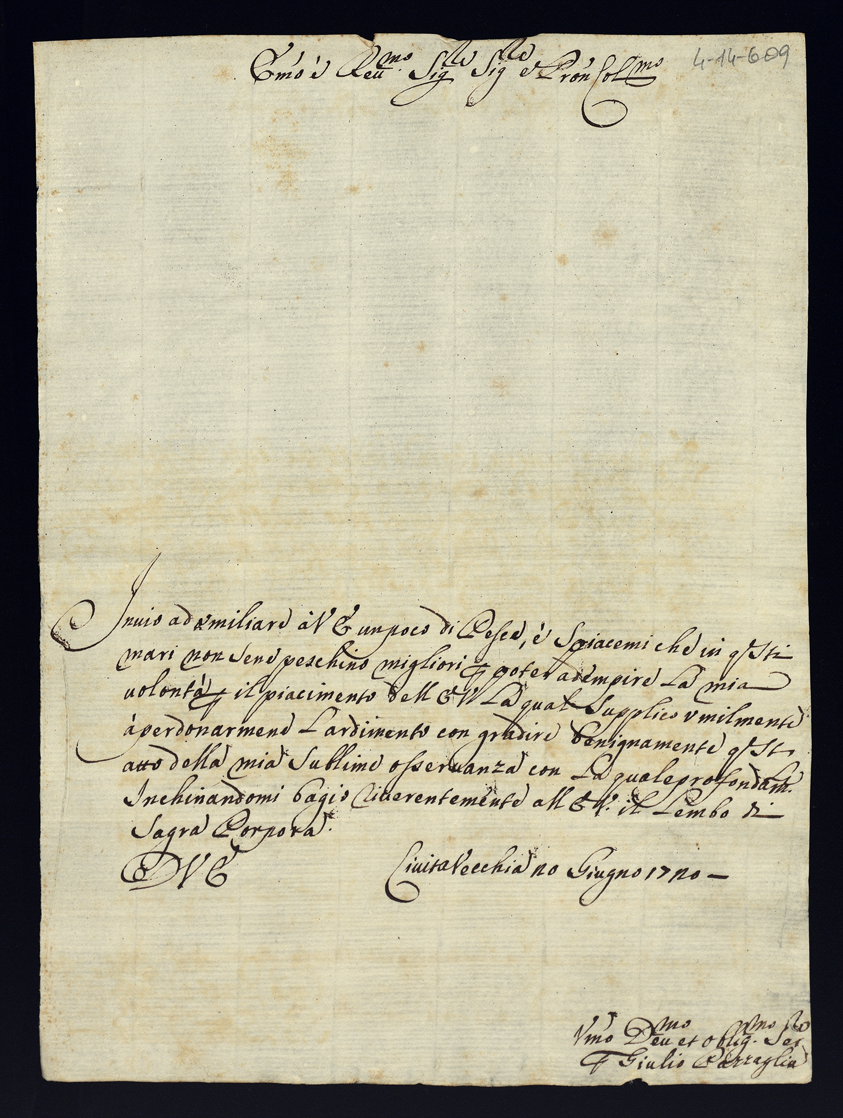 Em̃o è Reu.mo Sig.re Sig.re e Pron Col.mo
4-14-609
Inuio ad umiliare à V E un poco di Pesce, è spiacemi che in q.sti
mari non sene peschino migliori p poter adempire La mia
volontà p il piacimento dell E V La qual supplico umilmente
à perdonarmene L'ardimento con gradire benignamente q.st
atto della mia sublime osseruanza con La quale profondam.
Inchinandomi bagio riuerentemente all E V. il Lembo di
Sagra Porpora.
D V E
Ciuita Vecchia no Giugno 17no
Vm̃o Deu.mo et oblig.mo Ser.re
Giulio